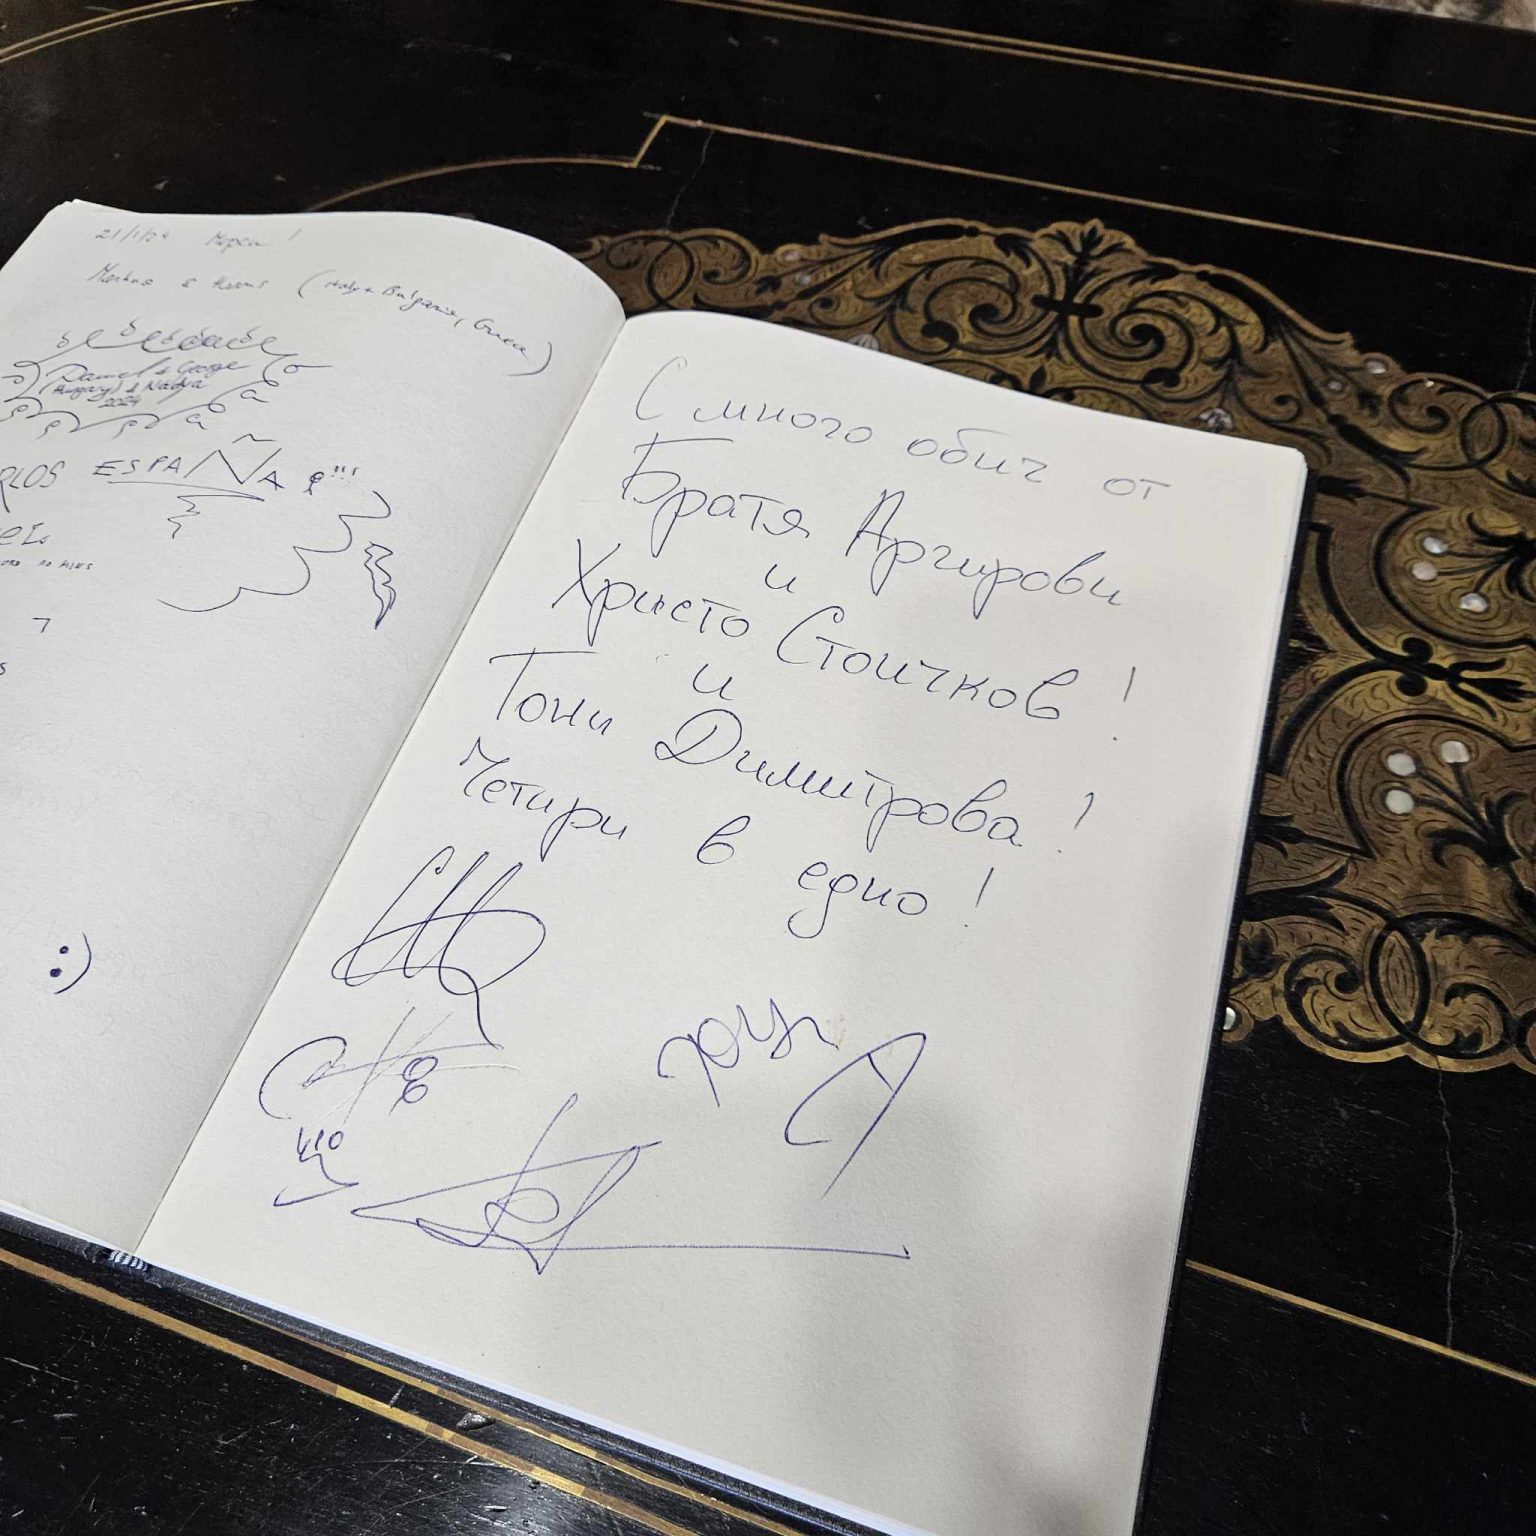 21/1/24 Мерси!
(Italy + Bulgaria,
Daniel & George
(Hungary) & Nadya
2024
RLOS ESPAÑA !!!
:)
С много обич от
Братя Аргирови
и
Христо Стоичков!
и
Тони Димитрова!
Четири в едно!